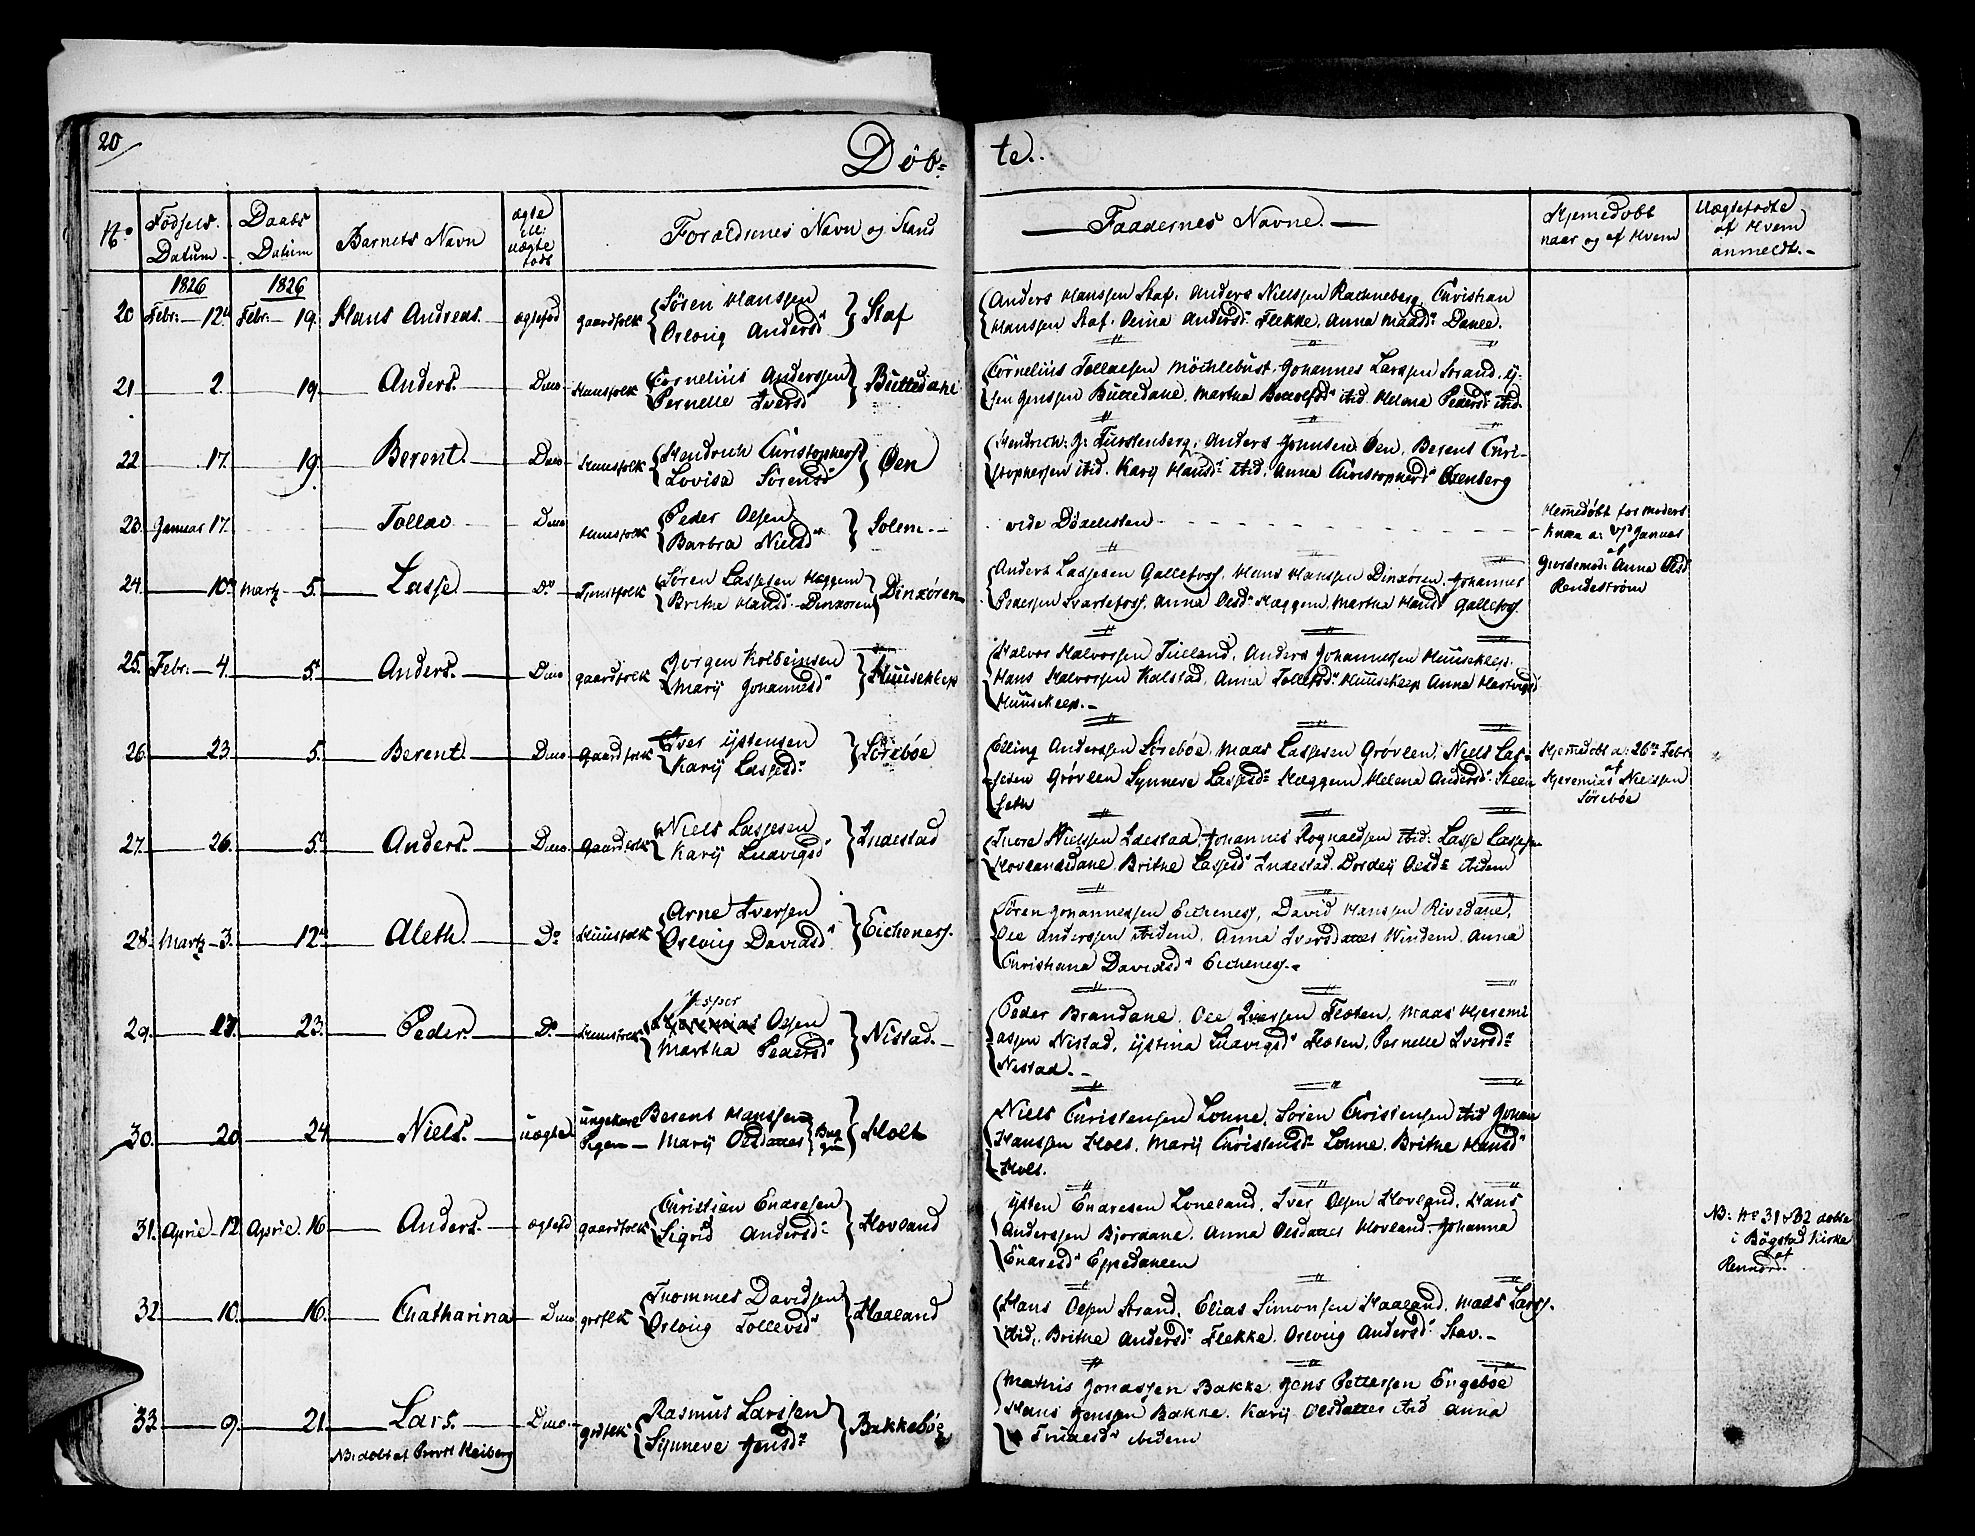 20
Døb-
te.
No
Fødsels
Datum
Daabs
Datum
Barnets Navn
ægte
ell:
uægte
født
Forældrenes Navn og Stand
Faddernes Navne.
Hjemedøbt
naar og af Hvem
Uægtefødte
af Hvem
anmeldt.
1826
1826
20 Febr: 12 Febr 19. Hans Andreas ægtefød gaardfolk Søren Hanssen
Orloug Andersd Staf
Anders Hanssen Staf. Anders Nielssen Rathneberg. Christian
Hanssen Staf. Andersd: Flekke. Anna Maadsd: Danee.
21 2. 19. Anders. Duo Huusfolk Cornelius Anderssen
Pernelle Iversd
Cornelius Tollacsen Möchlebust. Johannes Larssen Strand.
Jenssen Martha ibid. Helena Pedersd ibid.
22 17. 19. Berent. Duo Huusfolk Hendrich Christophers
Lovisa Sørensd Øen
Hendrich: J: Fürstenberg. Anders Øen, Berent Chri-
stophersen ibid. Karij Hansd: ibid. Anna Christophersd
23. Januar 17. Tollac Duo Huusfolk Peder Olsen
Barbra Nielsd Solem
vide Døxelisten
Hjemedøbt for Moders
Knæe a: 17d Januar
af
Giordemod: Anna Olsd
Rendestrøm
24. 10. Martz 5. Lasse Do Tjenstfolk Søren Lassesen Hæggem
Brithe Hansd Dinxören Dinxören
Anders Lassesen Gallefoss, Hans Hanssen Dinxören. Johannes
Pedersen Svartefoss. Anna Olsd: Hæggem, Martha Hansd Gallefoss.
25. Febr: 4. 5. Anders. Duo gaardfolk Jørgen Kolbeinsen
Marij Johannesd Huuseklep
Halvor Halvorsen Anders Johannessen Huuseklep.
Hans Halvorsen Kalstad, Anna Tollefsd: Huuseklep Anna Hartvigsd
Huuseklep.
26. 23. 5. Berent Duo Gaardfolk Iver ijstensen
Karij Lassesd: Sørebøe
Elling Anderssen Sørebøe. Maas Lassesen Grøvlen, Niels Las-
sesen Grøvlen Synneve Lassesd: Hæggem, Helena Andersd: Steen-
seth
Hjemedøbt a: 26de Febr
af
Hjeremias Nielssen
Sørebøe
27. 26. 5. Anders. Duo Gaardfolk Niels Lassesen
Karij Ludvigsd Indestad
Thore Nielssen Johannes Rognaldsen ibid: Lasse Lassesen
Hovlandsdane Brithe Lassesd Indestad. Dordeij Olsd: ibidem
28. Martz 3. 12. Aleth. Do Huusfolk Arne Iverssen
Orloug Davidsd Eicheness.
Søren Johannessen Eichenes, David Hanssen Rivedane,
Ole Anderssen ibidem, Anna Iversdatter Windem, Anna
Christiana Davidsd Eichenes.
29. 17. 23. Peder. Do Huusfolk Jesper
Olsen
Martha Pedersd Nistad.
Peder Brandane. Ole Iverssen Floten, Maas Hjeremi
assen Nistad, ijstina Ludvigsd Floten, Pernelle Iversd:
Nistad.
30. 20. 24. Niels. uægte ungekarl
Pigen Berent Hanssen
Marij Olsdatter Holt
Niels Christensen Lonne, Søren Christensen ibid Johan
Hanssen Holt, Marij Christensd: Lonne, Brithe Hansd
Holt.
31. April 12. April. 16 Anders. ægtefd gaardfolk Christian Endresen
Sigrid Andersd: Hovland
ijsten Endresen Loneland, Iver Olsen Hovland, Hans
Anderssen Bjordane, Anna Olsdatter Hovland. Johanna
Endresd Eppedaleen
NB: No 31 & 32 døbte
i Bøgstad Kirke
af
32. 10. 16. Chatharina Duo grdfolk Thommes Davidsen
Orloug Tollevsd Haaland
Hans Olsen Strand, Elias Simonsen Haaland, Mads Larss.
ibid., Brithe Andersd: Flekke, Orloug Andersd: Stav.
33. 9. 21. Lars. Duo grdfolk Rasmus Larssen
Synneve Jensd: Bakkebøe
NB: døbt af Provst Heiberg
Mathis Jonassen Bakke. Jens Pettersen Engebøe
Hans Jenssen Bakke. Karij Olsdatter ibid Anna
ibidem